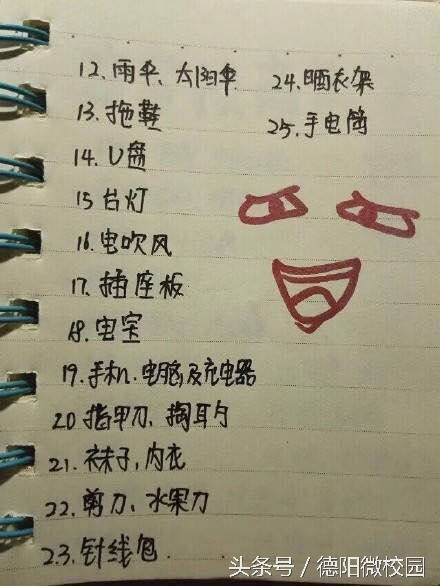 12.雨伞、太阳伞
13.拖鞋
14.U盘
15台灯
16.电吹风
17.插座板
18.电宝
19.手机.电脑及充电器
20指甲刀、掏耳勺
21.袜子,内衣
22.剪刀、水果刀
23.针线包.
24.晒衣架
25.手电筒
头条号/德阳微校园